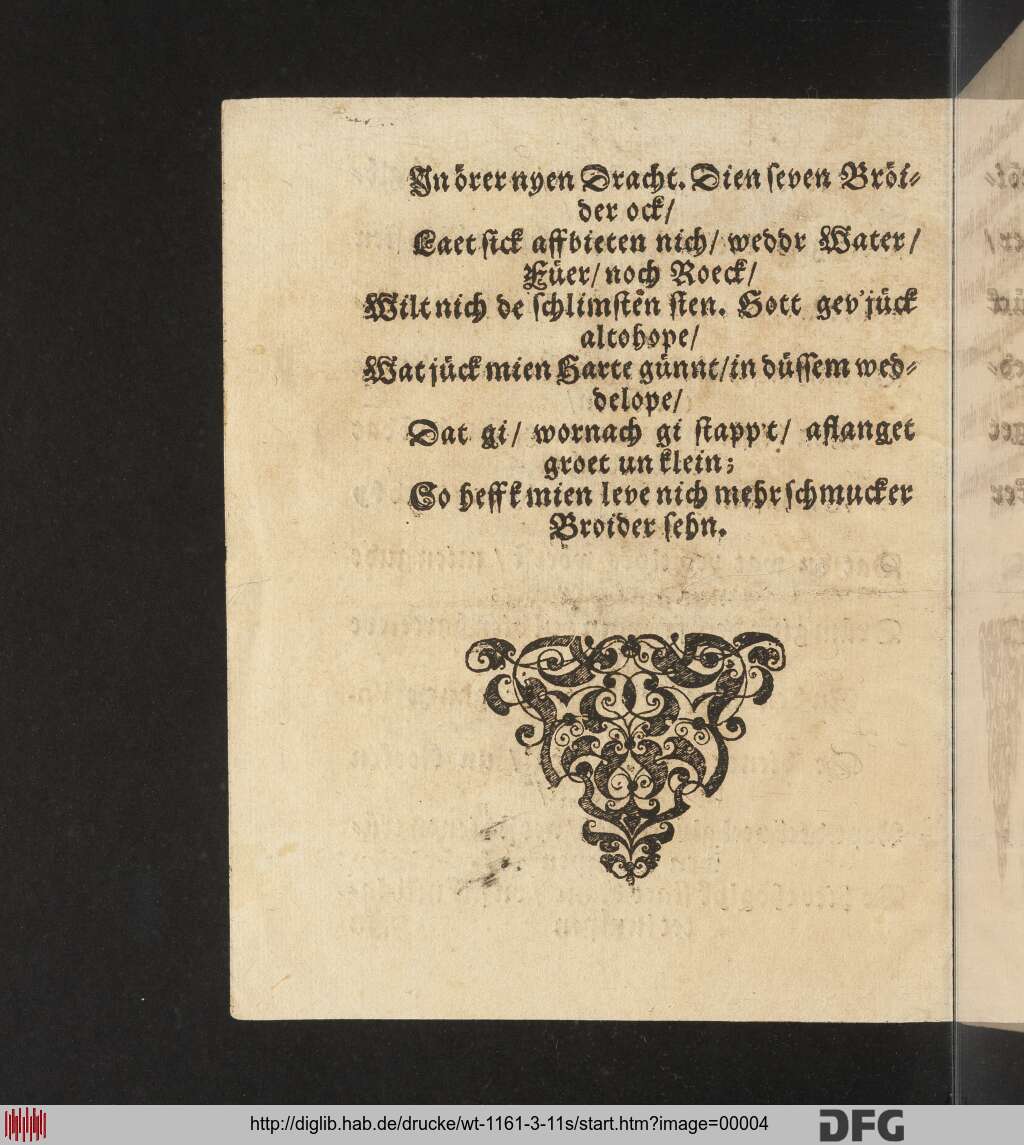 In örer nyen Dracht. Dien ſeven Bröi⸗
der ock/
Laet ſick affbieten nich/ weddr Water/
Füer/ noch Roeck/
Wilt nich de ſchlimſten ſien. Gott gev' jück
altohope/
Wat jück mien Harte günnt/ in düſſem wed⸗
delope/
Dat gi/ wornach gi ſtapp't/ aflanget
groet un klein;
So heff k mien leve nich mehr ſchmucker
Broider ſehn.
http://diglib.hab.de/drucke/wt-1161-3-11s/start.htm?image=00004
DFG